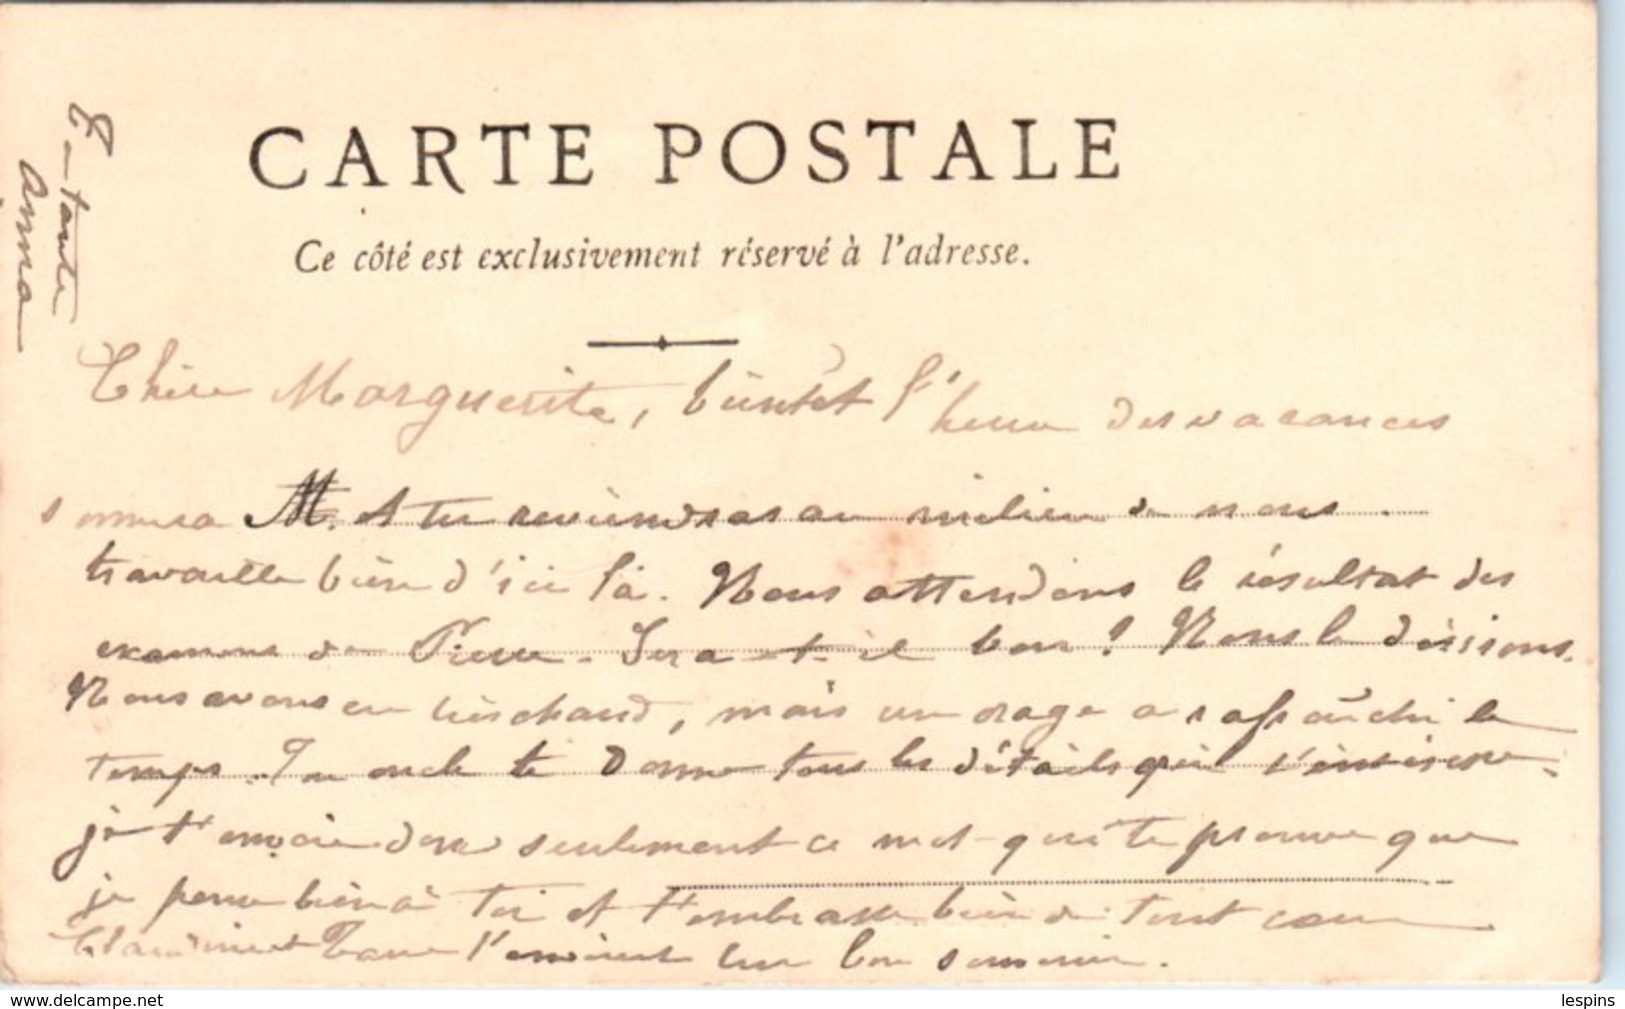 CARTE POSTALE
Ce côté est exclusivement réservé à l'adresse.
Chère Marguerite, bientôt l'heure des vacances
sonnera et tu reviendras au milieu de nous.
travaille bien d'ici là. Nous attendons le résultat des
examens de Pierre. Sera-t-il bon ? Nous le désirons.
Nous avons eu très chaud, mais un orage a rafraîchi le
temps. Ton oncle te donne tous les détails qui t'intéresse
je t'envoie donc seulement ce mot qui te prouve que
je pense bien à toi et t'embrasse bien de tout cœur
Claudine et t'envoient leur bon souvenir.
Ta tante
Anna
www.delcampe.net
lespins